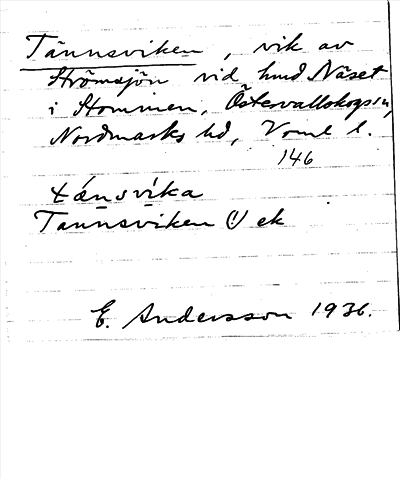 Tännsviken, vik av
Strömsjön vid hmd Näset
i Stommen, Östervallskogs sn,
Nordmarks hd, Vrml l.
146
tä́nsvìka
Tannsviken (!) ek
E. Andersson 1936.